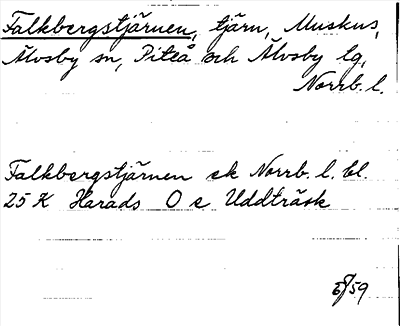 Falkbergstjärnen, tjärn, Muskus,
Älvsby sn, Piteå och Älvsby lg,
Norrb. l.
Falkbergstjärnen ek Norrb. l. bl.
25 K Harads O e Uddträsk
59